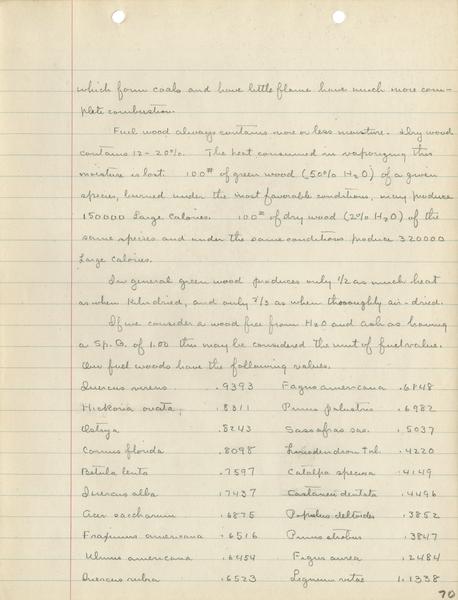 which form coals and have little flame have much more com-
plete combustion.
Fuel wood always contains more or less moisture. Dry wood
contains 12-20%. The heat consumed in vaporizing this
moisture is lost. 100# of green wood (50% H2O) of a given
species, burned under the most favorable conditions, may produce
150000 large calories. 100# of dry wood (2% H2O) of the
same species and under the same conditions produce 320000
large calories.
In general green wood produces only 1/2 as much heat
as when kiln dried, and only 2/3 as when thoroughly air-dried.
If we consider a wood free from H2O and ash as having
a Sp. G. of 1.00 this may be considered the unit of fuel value.
Our fuel woods have the following values.
Quercus virens .9393 Fagus americana .6848
Hickoria ovata .8311 Pinus palustris .6982
Ostrya .8243 Sassafras sas. .5037
Cornus florida .8098 Liriodendron tul. .4220
Betula lenta .7597 Catalpa speciosa .4149
Quercus alba .7437 Castanea dentata .4496
Acer saccharum .6875 Populus deltoides .3852
Fraxinus americana .6516 Pinus strobus .3847
Ulmus americana .6454 Ficus aurea .2484
Quercus rubra .6523 Lignum vitae 1.1338
70